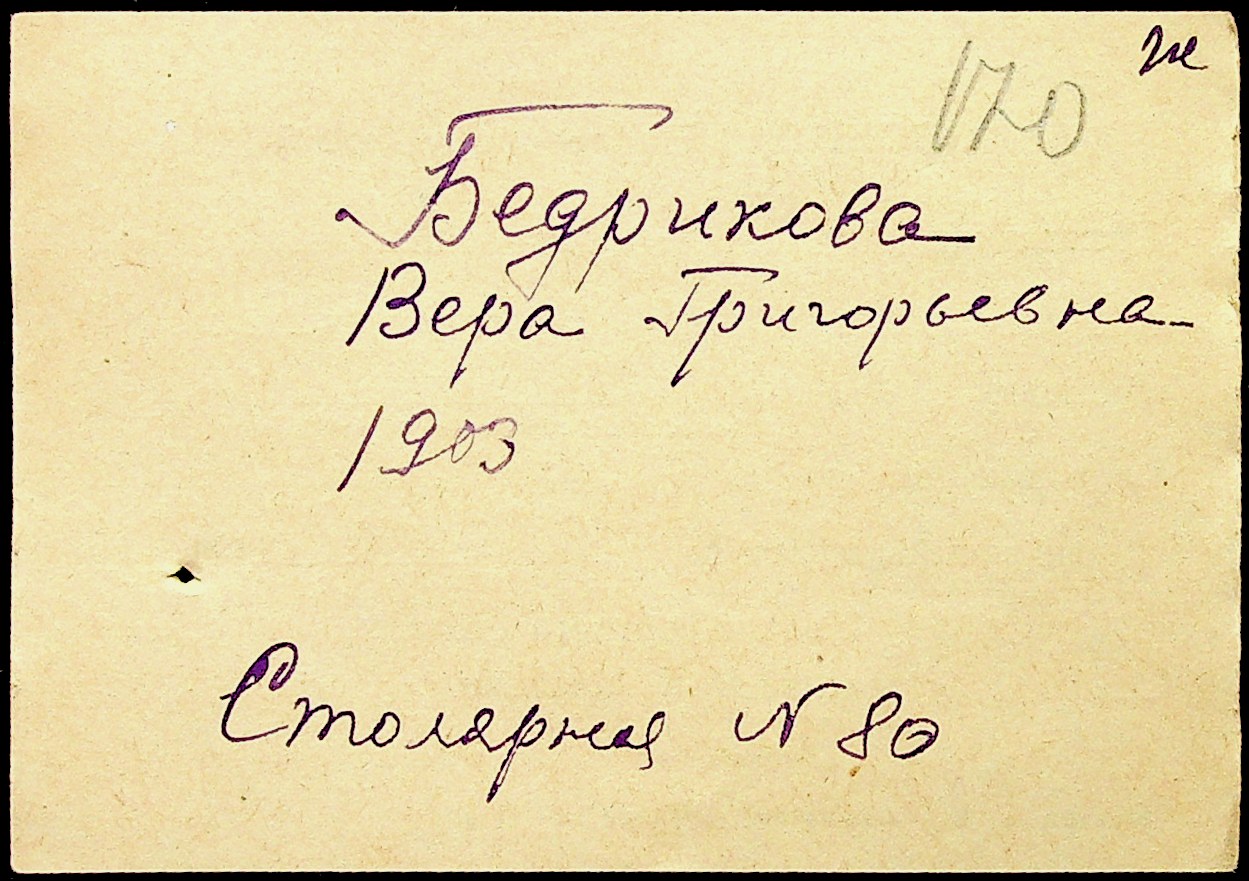 ж
170
Бедрикова
Вера Григорьевна
1903
Столярная N 80